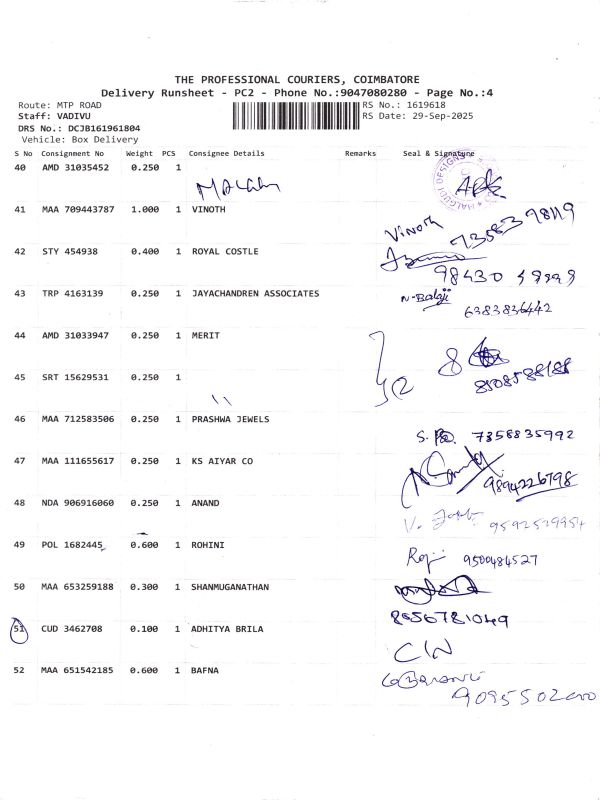 THE PROFESSIONAL COURIERS, COIMBATORE
Delivery Runsheet - PC2 - Phone No.:9047080280 - Page No.:4
Route: MTP ROAD
RS No.: 1619618
Staff: VADIVU
RS Date: 29-Sep-2025
DRS No.: DCJB161961804
Vehicle: Box Delivery
S No Consignment No Weight PCS Consignee Details Remarks Seal & Signature
40 AMD 31035452 0.250 1
41 MAA 709443787 1.000 1 VINOTH
Vinoth
42 STY 454938 0.400 1 ROYAL COSTLE
43 TRP 4163139 0.250 1 JAYACHANDREN ASSOCIATES N-Balaji
6383836442
44 AMD 31033947 0.250 1 MERIT
45 SRT 15629531 0.250 1
8508588188
46 MAA 712583506 0.250 1 PRASHWA JEWELS
7358835992
47 MAA 111655617 0.250 1 KS AIYAR CO
9894226798
48 NDA 906916060 0.250 1 ANAND
49 POL 1682445 0.600 1 ROHINI
9500484527
50 MAA 653259188 0.300 1 SHANMUGANATHAN
8656781049
51 CUD 3462708 0.100 1 ADHITYA BRILA
52 MAA 651542185 0.600 1 BAFNA